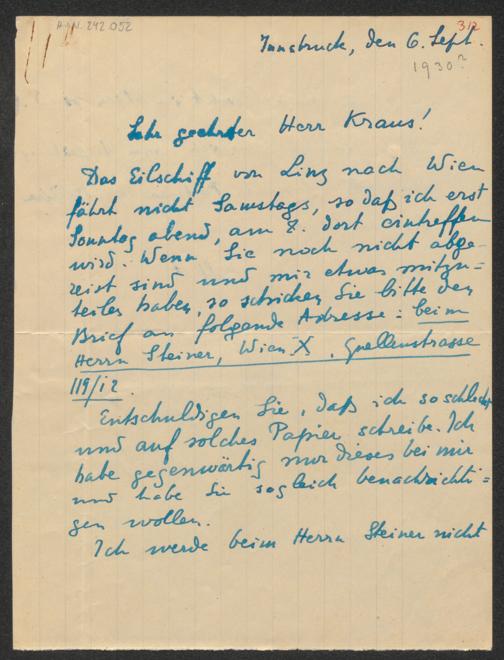 H.I.N. 242.052
312
Innsbruck, den 6. Sept.
1930?
Sehr geehrter Herr Kraus!
Das Eilschiff von Linz nach Wien
fährt nicht Samstags, so daß ich erst
Sonntag abend, am 7. dort eintreffen
wird. Wenn Sie noch nicht abge-
reist sind und mir etwas mitzu=
teilen haben, so schicken Sie bitte den
Brief an folgende Adresse: beim
Herrn Steiner, Wien X, Quellenstrasse
119/12.
Entschuldigen Sie, daß ich so schlecht
und auf solches Papier schreibe. Ich
habe gegenwärtig nur dieses bei mir
und habe Sie sogleich benachrichti=
gen wollen.
Ich werde beim Herrn Steiner nicht